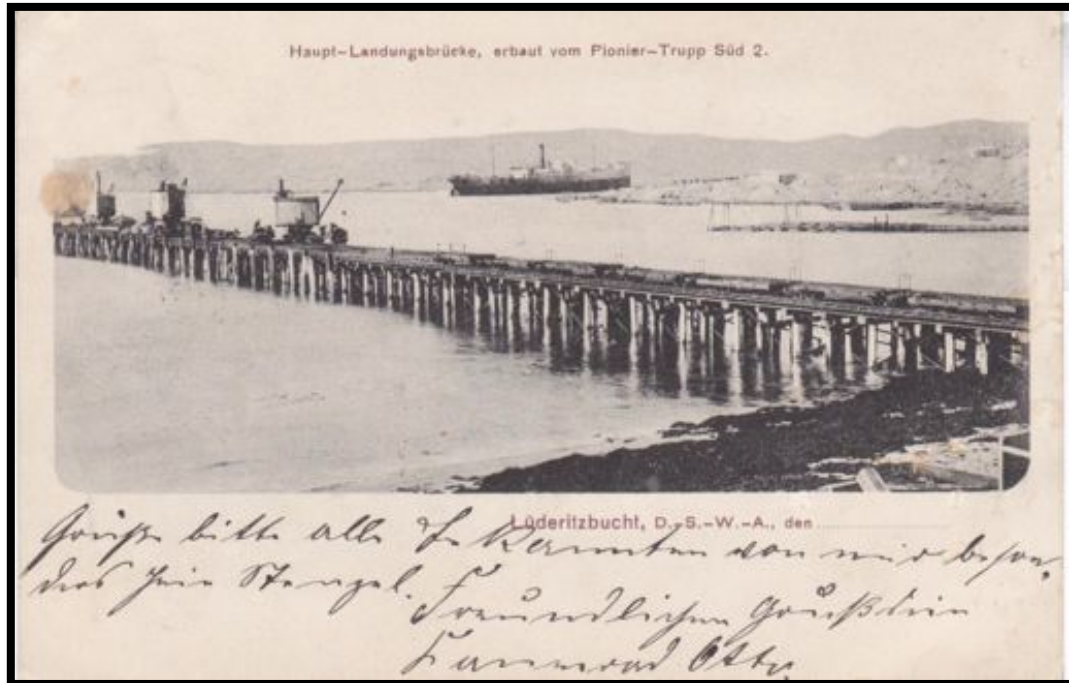 Haupt-Landungsbrücke, erbaut vom Pionier-Trupp Süd 2.
Lüderitzbucht, D.-S.-W.-A., den
Grüße bitte alle Bekannten von mir beson-
ders
Freundlichen Gruß dein
Kamerad Otto.